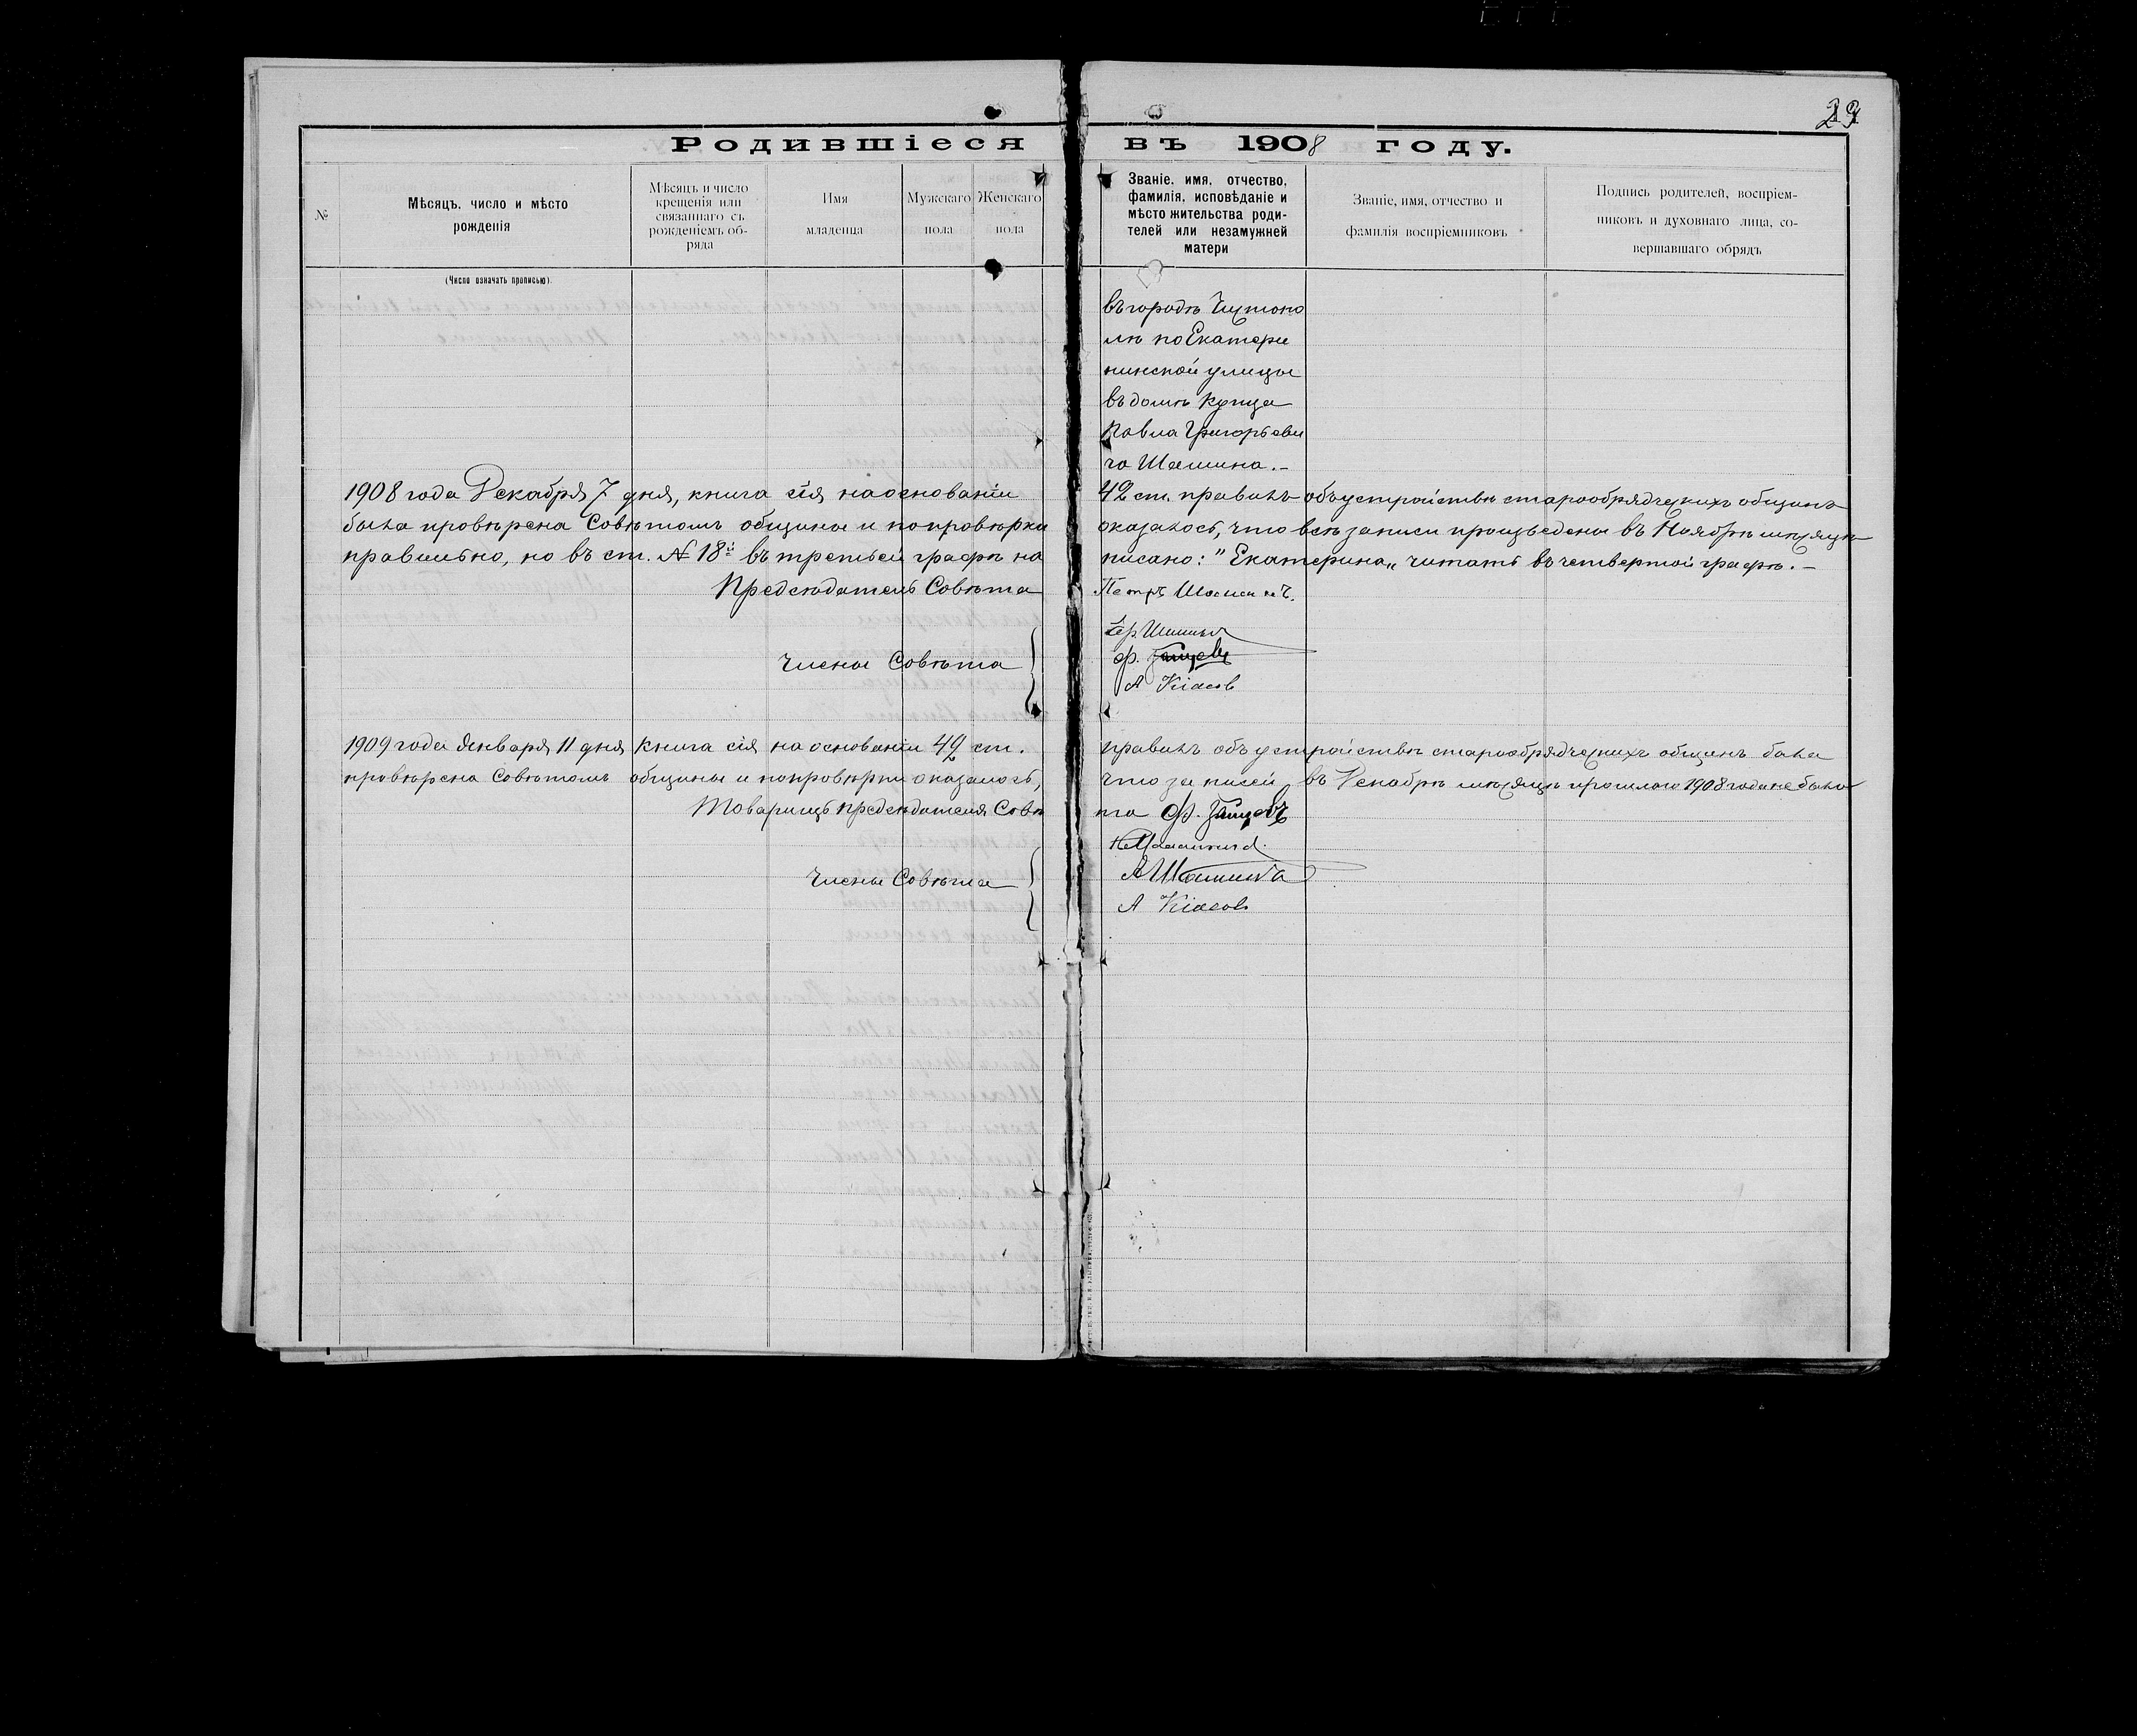 29
Родившіеся въ 1908 году.
№
Мѣсяцъ, число и мѣсто
рожденія
Мѣсяцъ и число
крещенія или
связаннаго съ
рожденіемъ об-
ряда
Имя
младенца
Мужскаго
пола
Женскаго
пола
Званіе, имя, отчество,
фамилія, исповѣданіе и
мѣсто жительства роди-
телей или незамужней
матери
Званіе, имя, отчество и
фамилія воспріемниковъ
Подпись родителей, воспріем-
никовъ и духовнаго лица, со-
вершавшаго обрядъ
(Число означать прописью).
въ городѣ Чистопо
лѣ по Екатери
нинской улицы
въ домѣ купца
Павла Григорьеви
ча Шашина.–
1908 года Декабря 7 дня, книга сія на основаніи 42 ст. правилъ объ устройствѣ старообрядческихъ общинъ
была провѣрена Совѣтомъ общины и по провѣрки оказалось, что всѣ записи произведены въ Ноябрѣ мѣсяцѣ
правильно, но въ ст. № 18й въ третьей графѣ на писано: "Екатерина„ читать въ четвертой графѣ.–
Предсѣдатель Совѣта Петръ Шашинъ.
Члены Совѣта
А Кіасов
1909 года Января 11 дня книга сія на основаніи 42 ст. правилъ объ устройствѣ старообрядческихъ общинъ была
провѣрена Совѣтомъ общины и по провѣрки оказалось, что записей въ Декабрѣ мѣсяцѣ прошлаго 1908 года не было
Товарищъ предсѣдателя Совѣ та Ф. Зайцевъ
Члены Совѣта
А Шашинъ
А Кіасов